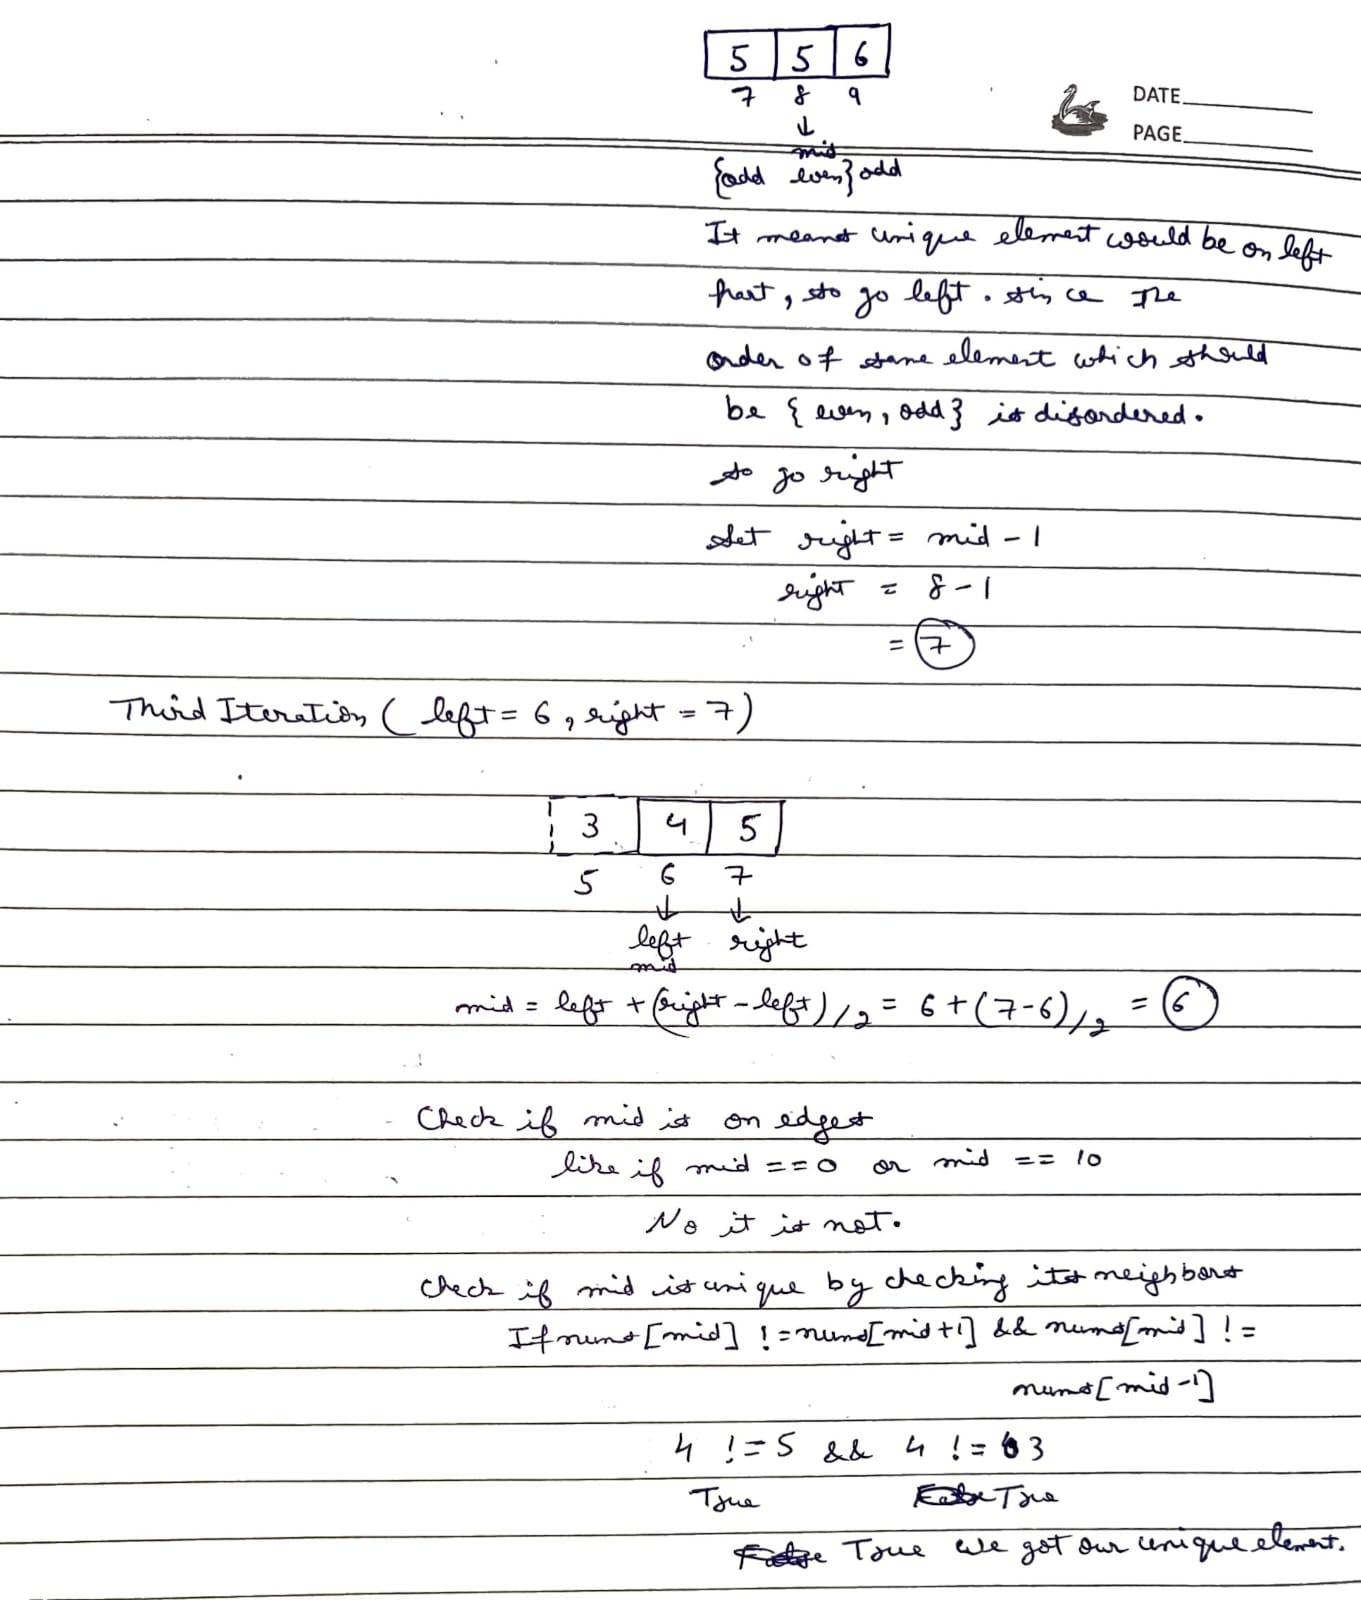 5 5 6
7 8 9
DATE
PAGE
↓
mid
{odd even} odd
It means unique element would be on left
part, so go left. since the
order of same element which should
be { even, odd } is disordered.
so go right
set right = mid - 1
right = 8 - 1
= 7
Third Iteration ( left = 6, right = 7)
3 4 5
5 6 7
↓ ↓
left right
mid
mid = left + (right - left)/2 = 6 + (7-6)/2 = 6
Check if mid is on edges
like if mid == 0 or mid == 10
No it is not.
Check if mid is unique by checking its neighbors
If nums[mid] != nums[mid+1] && nums[mid] !=
nums[mid-1]
4 != 5 && 4 != 3
True True
True we got our unique element.